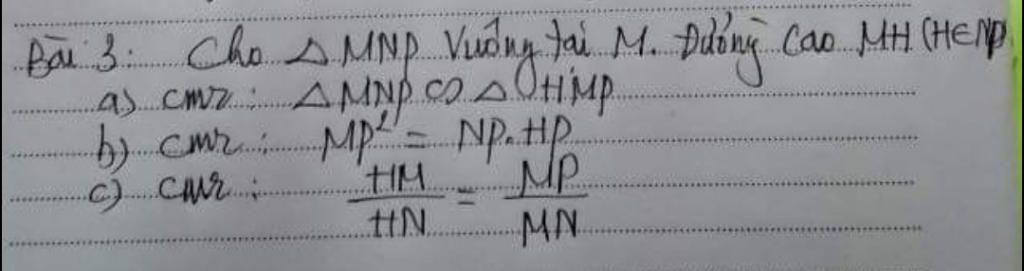 Bài 3: Cho △MNP Vuông tại M. Đường Cao MH (H∈NP)
a) cmr: △MNP ∽ △HMP
b) cmr: MP² = NP.HP
c) cmr: HM/HN = MP/MN